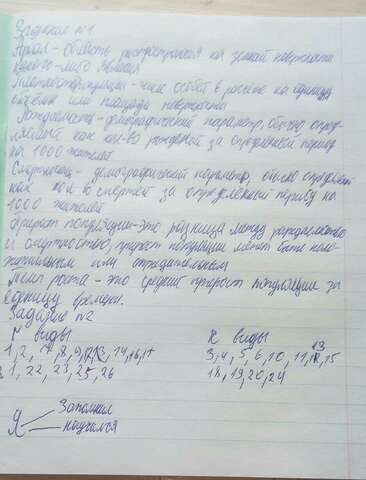 Задание №1
Ареал - область распространения на земной поверхности
какого-либо явления
Плотность популяции - число особей в расчёте на единицу
объёма или площади поверхности
Рождаемость - демографический параметр, обычно опред-
ляемый как кол-во рождений за определённый период
на 1000 жителей
Смертность - демографический параметр, обычно определяемый
как кол-во смертей за определённый период на
1000 жителей
Прирост популяции - это разница между рождаемостью
и смертностью, прирост популяции может быть поло-
жительным или отрицательным
Темп роста - это средний прирост популяции за
единицу времени.
Задание №2
r виды K виды
1, 2, 7, 8, 9, 14, 16, 17 3, 4, 5, 6, 10, 11, 13, 15
21, 22, 23, 25, 26 18, 19, 20, 24
Запомнил
Я
научился